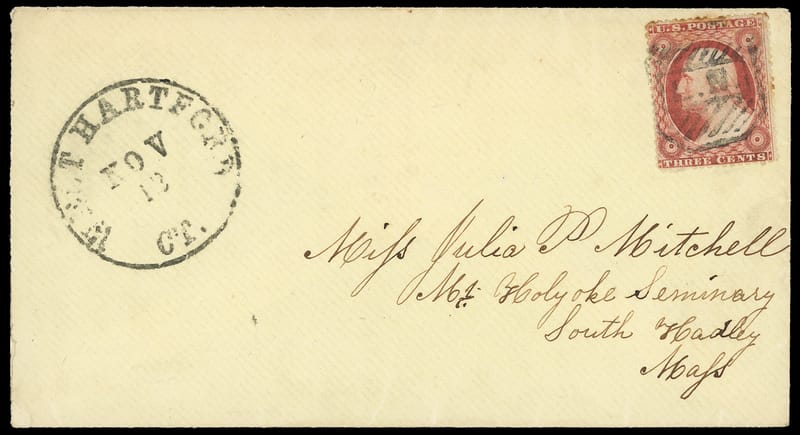 WEST HARTFORD
NOV
CT.
U.S. POSTAGE
THREE CENTS
Miss Julia P Mitchell
Mt. Holyoke Seminary
South Hadley
Mass